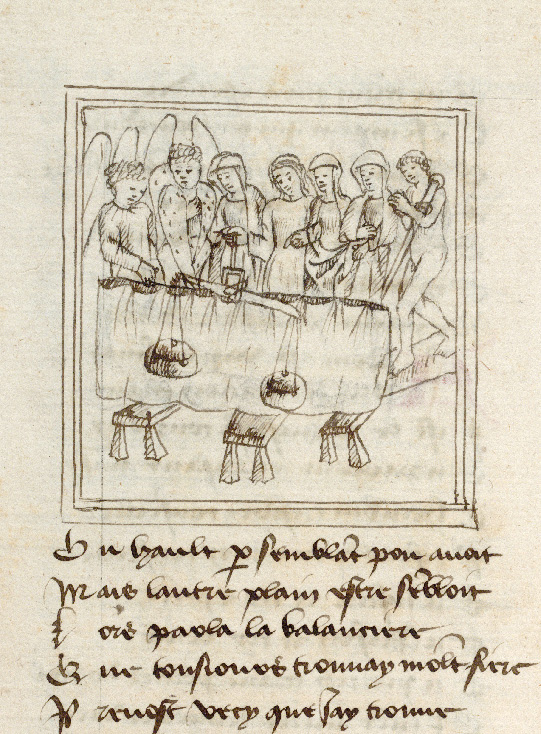 En hault p semblãt pou auoit
Mais lautre plain estre sẽbloit
Lors parla la balanciere
Que tousiours trouuay molt fiere
Preuost vecy que Jay trouue